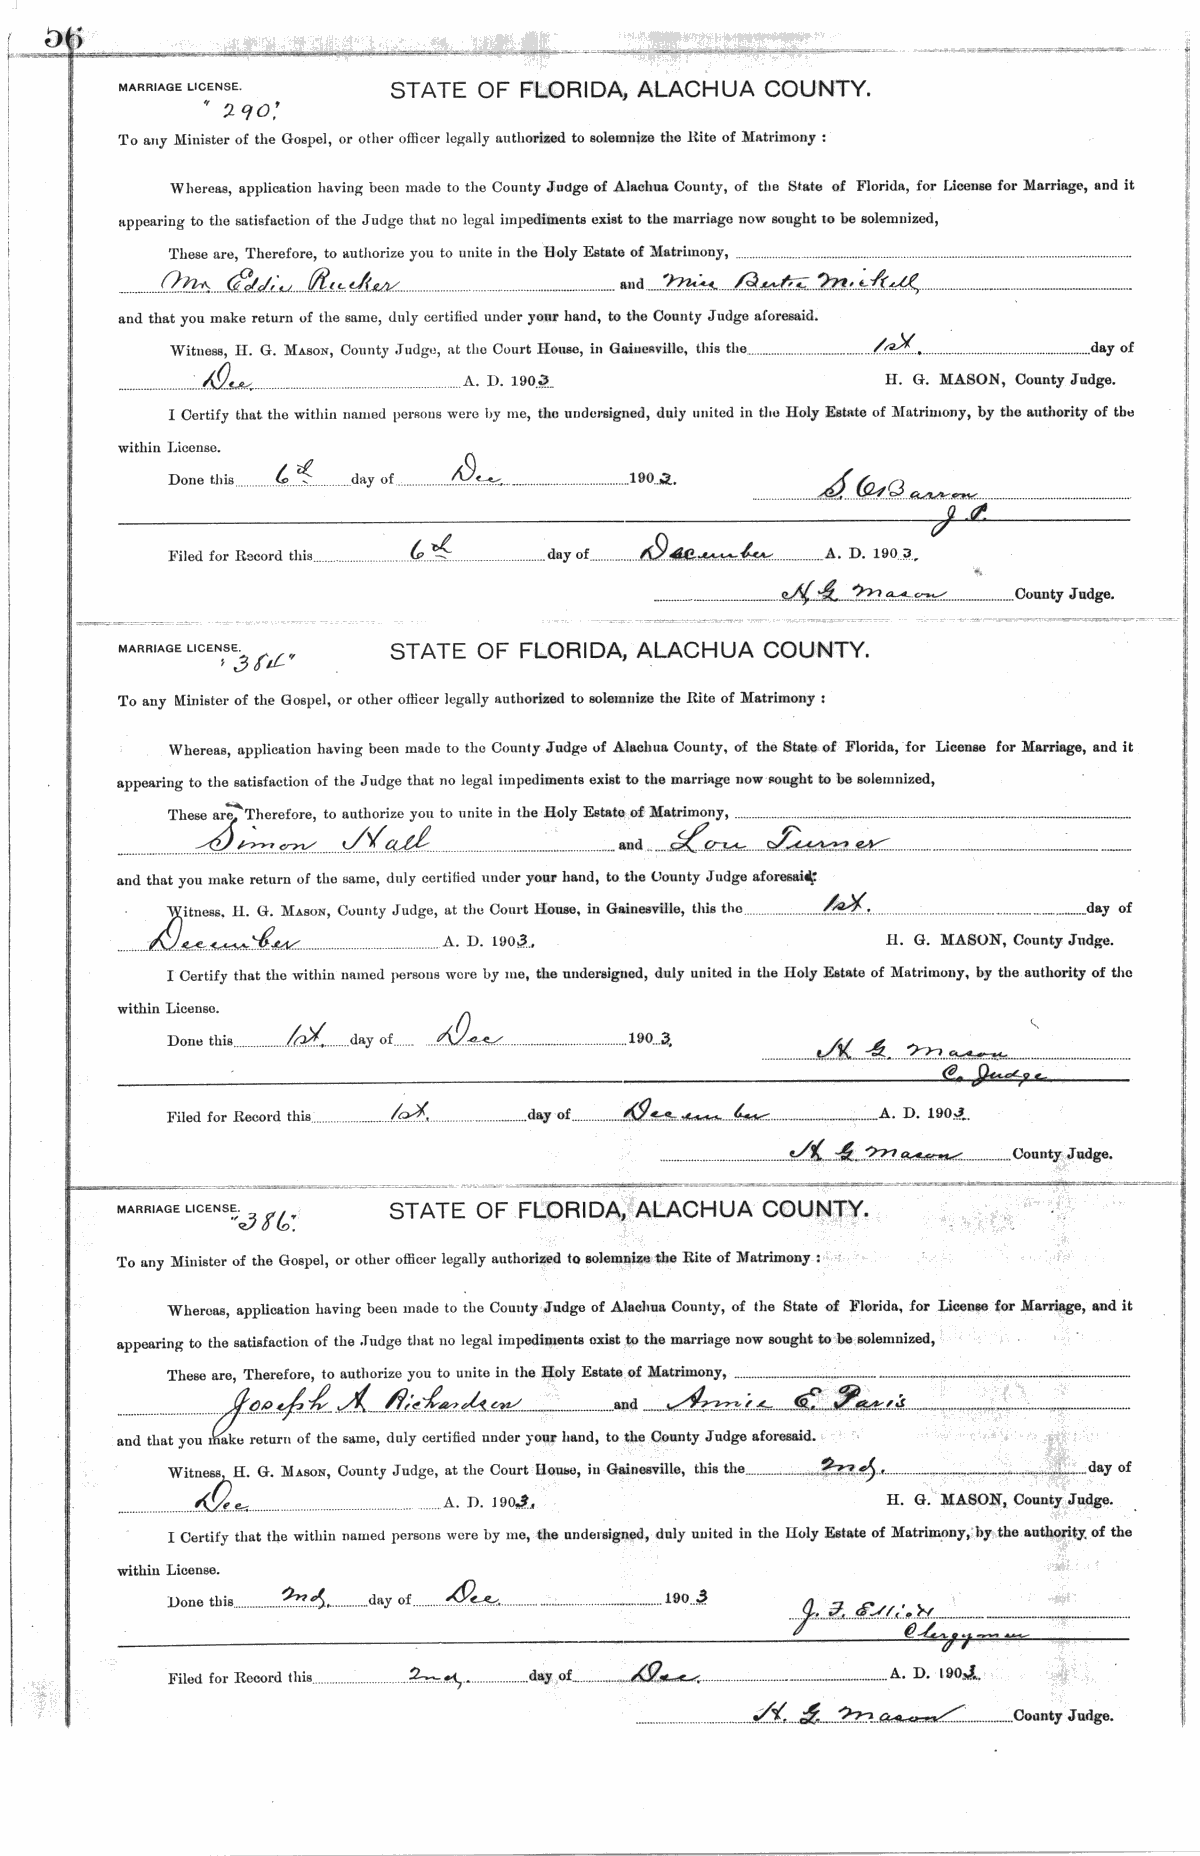 56
MARRIAGE LICENSE. STATE OF FLORIDA, ALACHUA COUNTY.
"290."
To any Minister of the Gospel, or other officer legally authorized to solemnize the Rite of Matrimony :
Whereas, application having been made to the County Judge of Alachua County, of the State of Florida, for License for Marriage, and it
appearing to the satisfaction of the Judge that no legal impediments exist to the marriage now sought to be solemnized,
These are, Therefore, to authorize you to unite in the Holy Estate of Matrimony,
Mr. Eddie Rucker and Miss Bertie Mickell,
and that you make return of the same, duly certified under your hand, to the County Judge aforesaid.
Witness, H. G. MASON, County Judge, at the Court House, in Gainesville, this the 1st. day of
Dec. A. D. 1903 H. G. MASON, County Judge.
I Certify that the within named persons were by me, the undersigned, duly united in the Holy Estate of Matrimony, by the authority of the
within License.
Done this 6th day of Dec. 1903.
S. O. Barron
J. P.
Filed for Record this 6th day of December A. D. 1903.
H. G. Mason County Judge.
MARRIAGE LICENSE. STATE OF FLORIDA, ALACHUA COUNTY.
"384"
To any Minister of the Gospel, or other officer legally authorized to solemnize the Rite of Matrimony :
Whereas, application having been made to the County Judge of Alachua County, of the State of Florida, for License for Marriage, and it
appearing to the satisfaction of the Judge that no legal impediments exist to the marriage now sought to be solemnized,
These are, Therefore, to authorize you to unite in the Holy Estate of Matrimony,
Simon Hall and Lou Turner
and that you make return of the same, duly certified under your hand, to the County Judge aforesaid.
Witness, H. G. MASON, County Judge, at the Court House, in Gainesville, this the 1st. day of
December A. D. 1903. H. G. MASON, County Judge.
I Certify that the within named persons were by me, the undersigned, duly united in the Holy Estate of Matrimony, by the authority of the
within License.
Done this 1st. day of Dec 1903.
H. G. Mason
C. Judge
Filed for Record this 1st. day of December A. D. 1903.
H. G. Mason County Judge.
MARRIAGE LICENSE. STATE OF FLORIDA, ALACHUA COUNTY.
"386."
To any Minister of the Gospel, or other officer legally authorized to solemnize the Rite of Matrimony :
Whereas, application having been made to the County Judge of Alachua County, of the State of Florida, for License for Marriage, and it
appearing to the satisfaction of the Judge that no legal impediments exist to the marriage now sought to be solemnized,
These are, Therefore, to authorize you to unite in the Holy Estate of Matrimony,
Joseph A Richardson and Annie E. Paris
and that you make return of the same, duly certified under your hand, to the County Judge aforesaid.
Witness, H. G. MASON, County Judge, at the Court House, in Gainesville, this the 2nd. day of
Dec. A. D. 1903. H. G. MASON, County Judge.
I Certify that the within named persons were by me, the undersigned, duly united in the Holy Estate of Matrimony, by the authority of the
within License.
Done this 2nd. day of Dec. 1903
J. F. Elliott
Clergyman
Filed for Record this 2nd. day of Dec. A. D. 1903.
H. G. Mason County Judge.